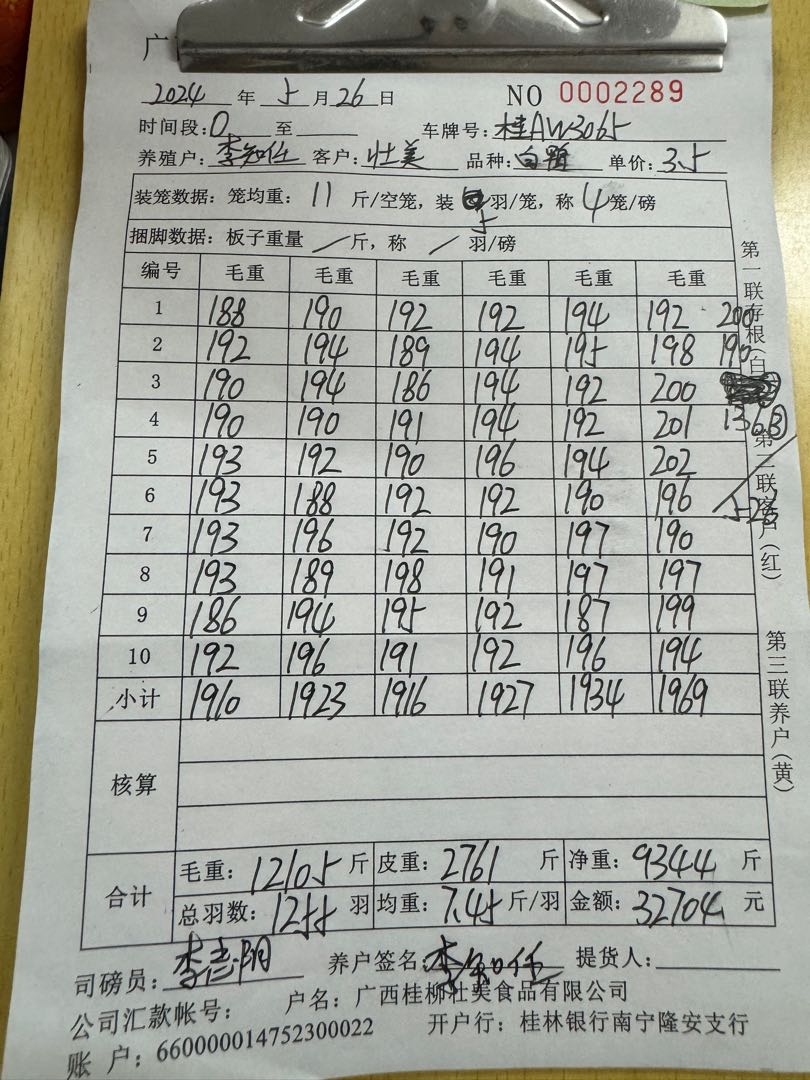 广
2024 年 5 月 26 日 NO 0002289
时间段:0 至 车牌号:桂AW3065
养殖户:李知任 客户:壮美 品种:白鸭 单价:3.5
装笼数据:笼均重:11 斤/空笼,装 5 羽/笼,称 4 笼/磅
捆脚数据:板子重量 / 斤,称 / 羽/磅
编号 毛重 毛重 毛重 毛重 毛重 毛重
1 188 190 192 192 194 192 200
2 192 194 189 194 195 198 190
3 190 194 186 194 192 200
4 190 190 191 194 192 201 136 ③
5 193 192 190 196 194 202
6 193 188 192 192 190 196 526
7 193 196 192 190 197 190
8 193 189 198 191 197 197
9 186 194 195 192 187 199
10 192 196 191 192 196 194
小计 1910 1923 1916 1927 1934 1969
核算
合计 毛重:12105 斤 皮重:2761 斤 净重:9344 斤
总羽数:1255 羽 均重:7.45 斤/羽 金额:32704 元
司磅员:李志阳 养户签名:李知任 提货人:
公司汇款帐号: 户名:广西桂柳壮美食品有限公司
账 户:660000014752300022 开户行:桂林银行南宁隆安支行
第一联存根(白
第二联客户(红)
第三联养户(黄)